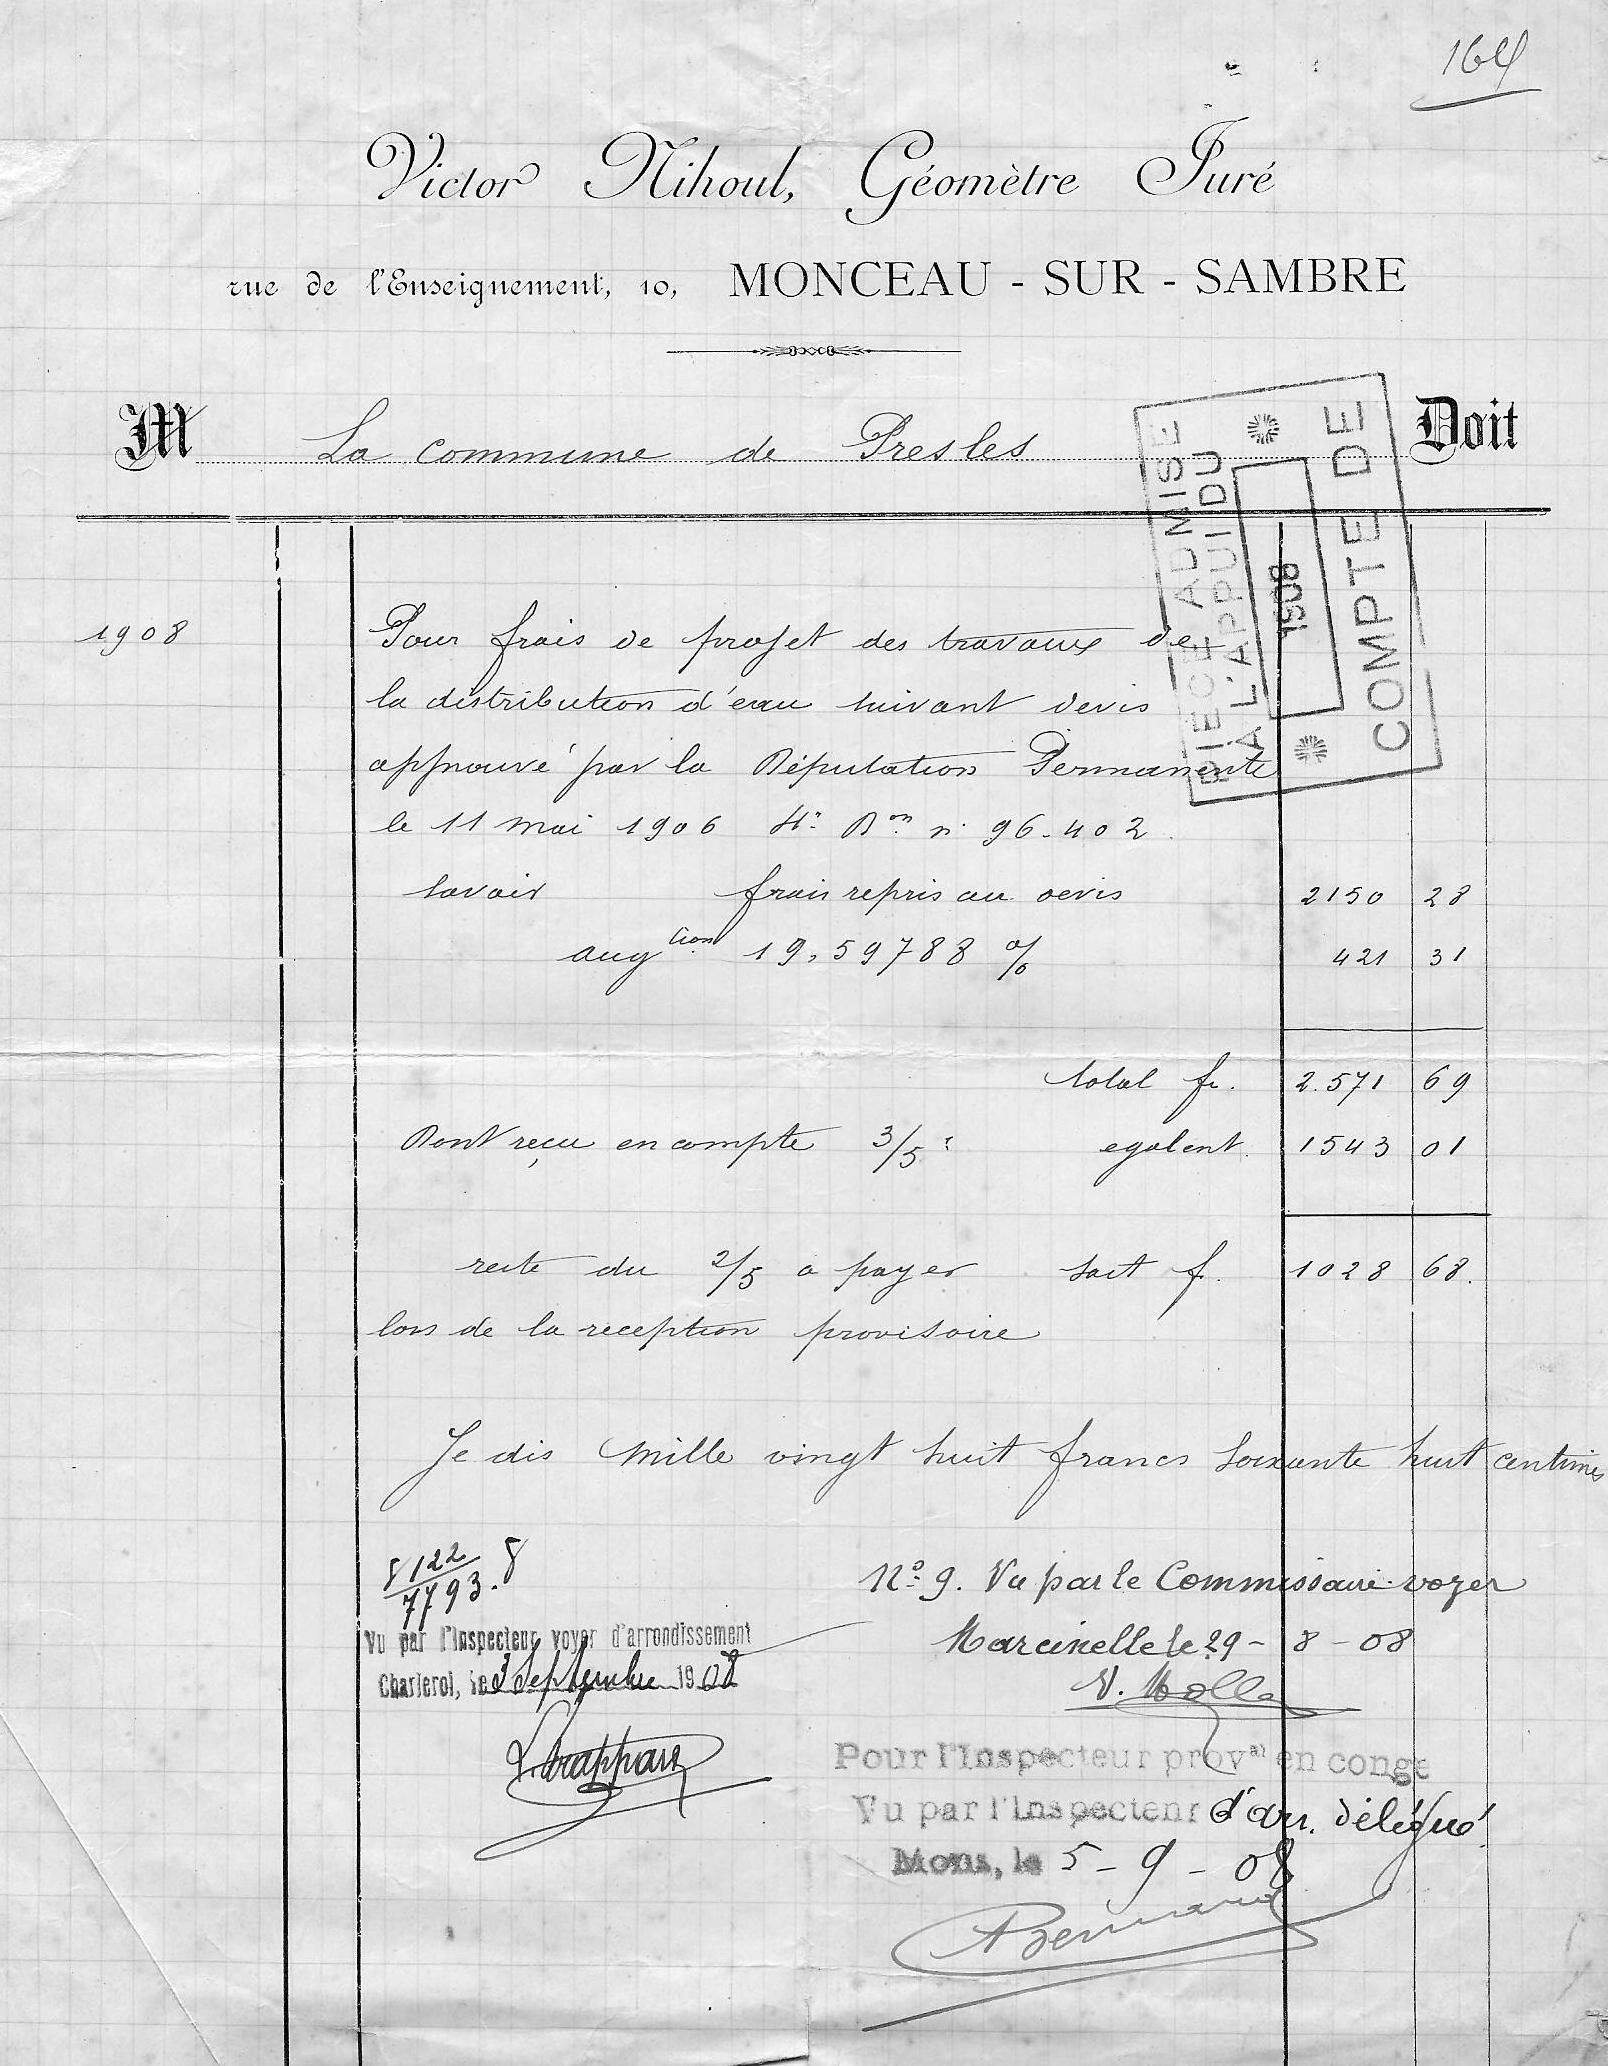 164
Victor Nihoul, Géomètre Juré
rue de l'Enseignement, 10, MONCEAU - SUR - SAMBRE
M La commune de Presles Doit
PIECE ADMISE
À L'APPUI DU
1908
COMPTE DE
1908 Pour frais de projet des travaux de
la distribution d'eau suivant devis
approuvé par la Députation Permanente
le 11 mai 1906 4e Don n° 96.402
savoir frais repris au devis 2150 28
augtion 19,59788 % 421 31
total fr. 2.571 69
Dont reçu en compte 3/5 egalent 1543 01
reste du 2/5 a payer soit f. 1028 68.
lors de la reception provisoire
Je dis mille vingt huit francs soixante huit centimes
8122
7793.8
N° 9. Vu par le Commissaire voyer
Marcinelle le 29 - 8 - 08
V. Molle
Vu par l'Inspecteur voyer d'arrondissement
Charleroi, le 3 Septembre 1908
Pour l'Inspecteur proval en congé
Vu par l'Inspecteur d'arr. délégué
Mons, le 5 - 9 - 08